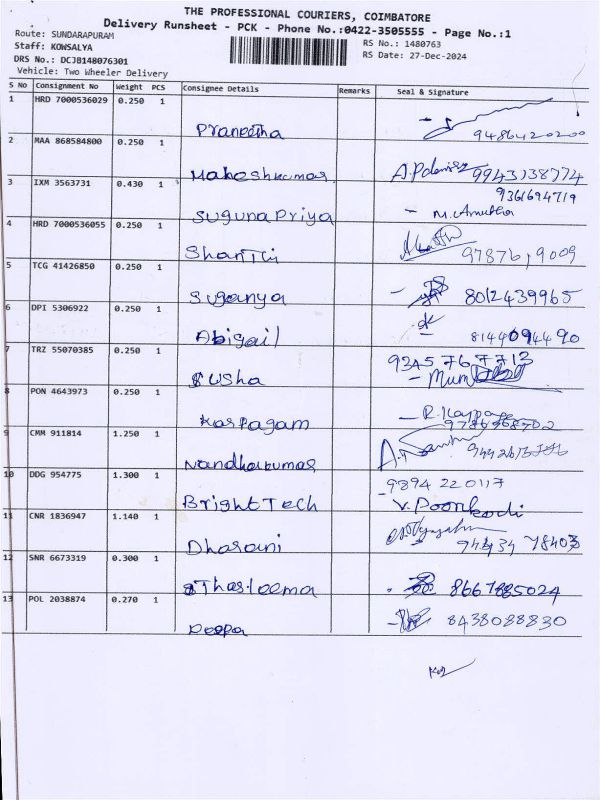 THE PROFESSIONAL COURIERS, COIMBATORE
Delivery Runsheet - PCK - Phone No.:0422-3505555 - Page No.:1
Route: SUNDARAPURAM
Staff: KOWSALYA
DRS No.: DCJB148076301
Vehicle: Two Wheeler Delivery
RS No.: 1480763
RS Date: 27-Dec-2024
S No Consignment No Weight PCS Consignee Details Remarks Seal & Signature
1 HRD 7000536029 0.250 1
Praneetha 9486420200
2 MAA 868584800 0.250 1
Maheshkumar 9943138774
3 IXM 3563731 0.430 1 9361694719
Suguna Priya M. Amutha
4 HRD 7000536055 0.250 1
Shanthi 9787619009
5 TCG 41426850 0.250 1
Suganya 8012439965
6 DPI 5306922 0.250 1
Abigail 8144094490
7 TRZ 55070385 0.250 1 9345767713
Susha
8 PON 4643973 0.250 1
Karpagam
9 CMR 911814 1.250 1
Nandhakumar
10 DDG 954775 1.300 1 9894220117
Bright Tech V. Poonkodi
11 CNR 1836947 1.140 1
Dharani
12 SNR 6673319 0.300 1
Thasleema 8667885024
13 POL 2038874 0.270 1
Deepa 8438088830